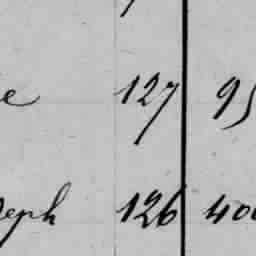 e 127 95
seph 126 400